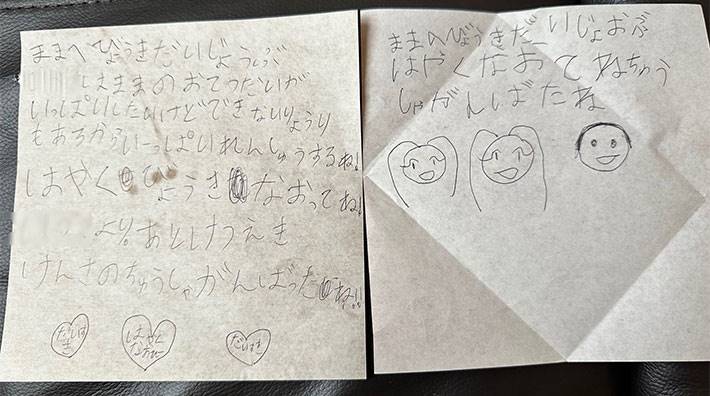 ままへびょうきだいじょうぶ
はままのおてつだいが
いっぱいしたいけどできないりょうり
もあるからいーっぱいれんしゅうするね!
はやくびょうきなおってね!
より。あとけつえき
けんさのちゅうしゃがんばったね!!
だいすき
はやく
なおって
だいすき
ままへびょうきだいじょおぶ
はやくなおてねちゅう
しゃがんばたね